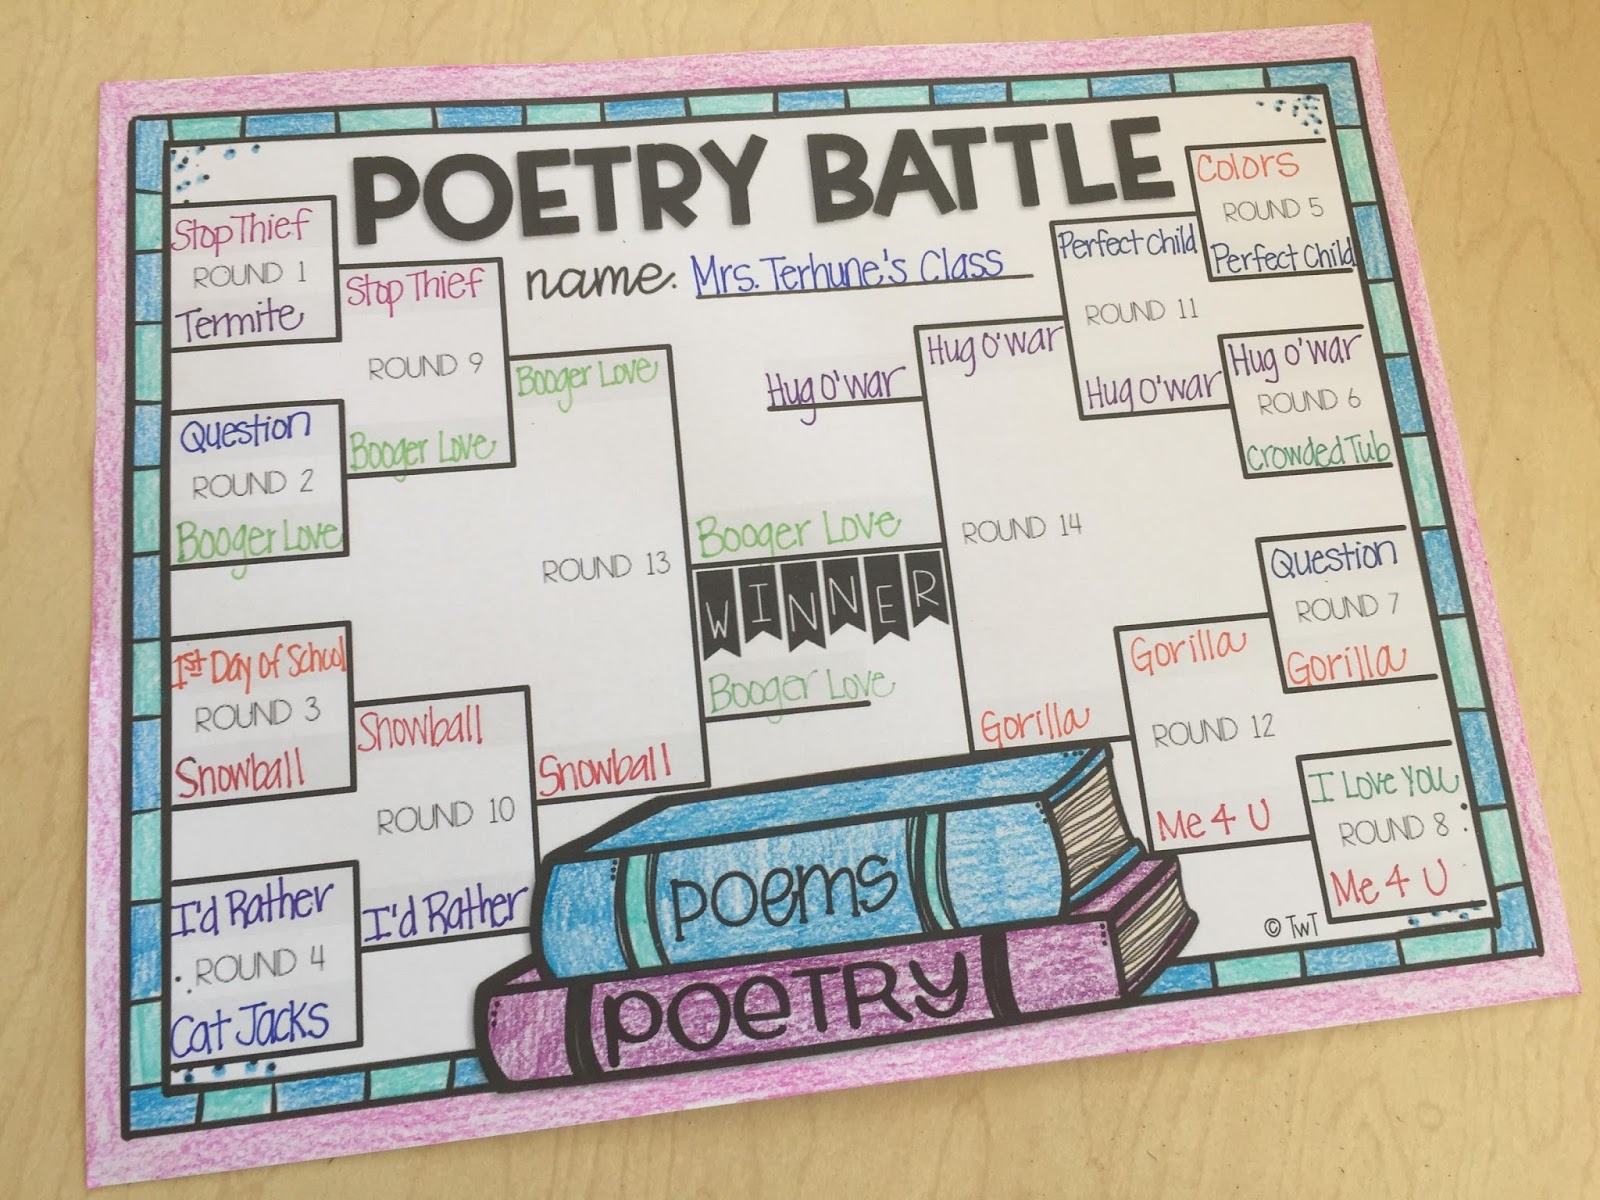 POETRY BATTLE
name: Mrs. Terhune's Class
Stop Thief
ROUND 1
Termite
Question
ROUND 2
Booger Love
1st Day of School
ROUND 3
Snowball
I'd Rather
ROUND 4
Cat Jacks
Stop Thief
ROUND 9
Booger Love
Snowball
ROUND 10
I'd Rather
Booger Love
ROUND 13
Snowball
Hug O'war
Booger Love
WINNER
Booger Love
Hug O'war
ROUND 14
Gorilla
Perfect Child
ROUND 11
Hug O'war
Gorilla
ROUND 12
Me 4 U
Colors
ROUND 5
Perfect Child
Hug O'war
ROUND 6
Crowded Tub
Question
ROUND 7
Gorilla
I Love You
ROUND 8
Me 4 U
poems
POETRY
© TwT